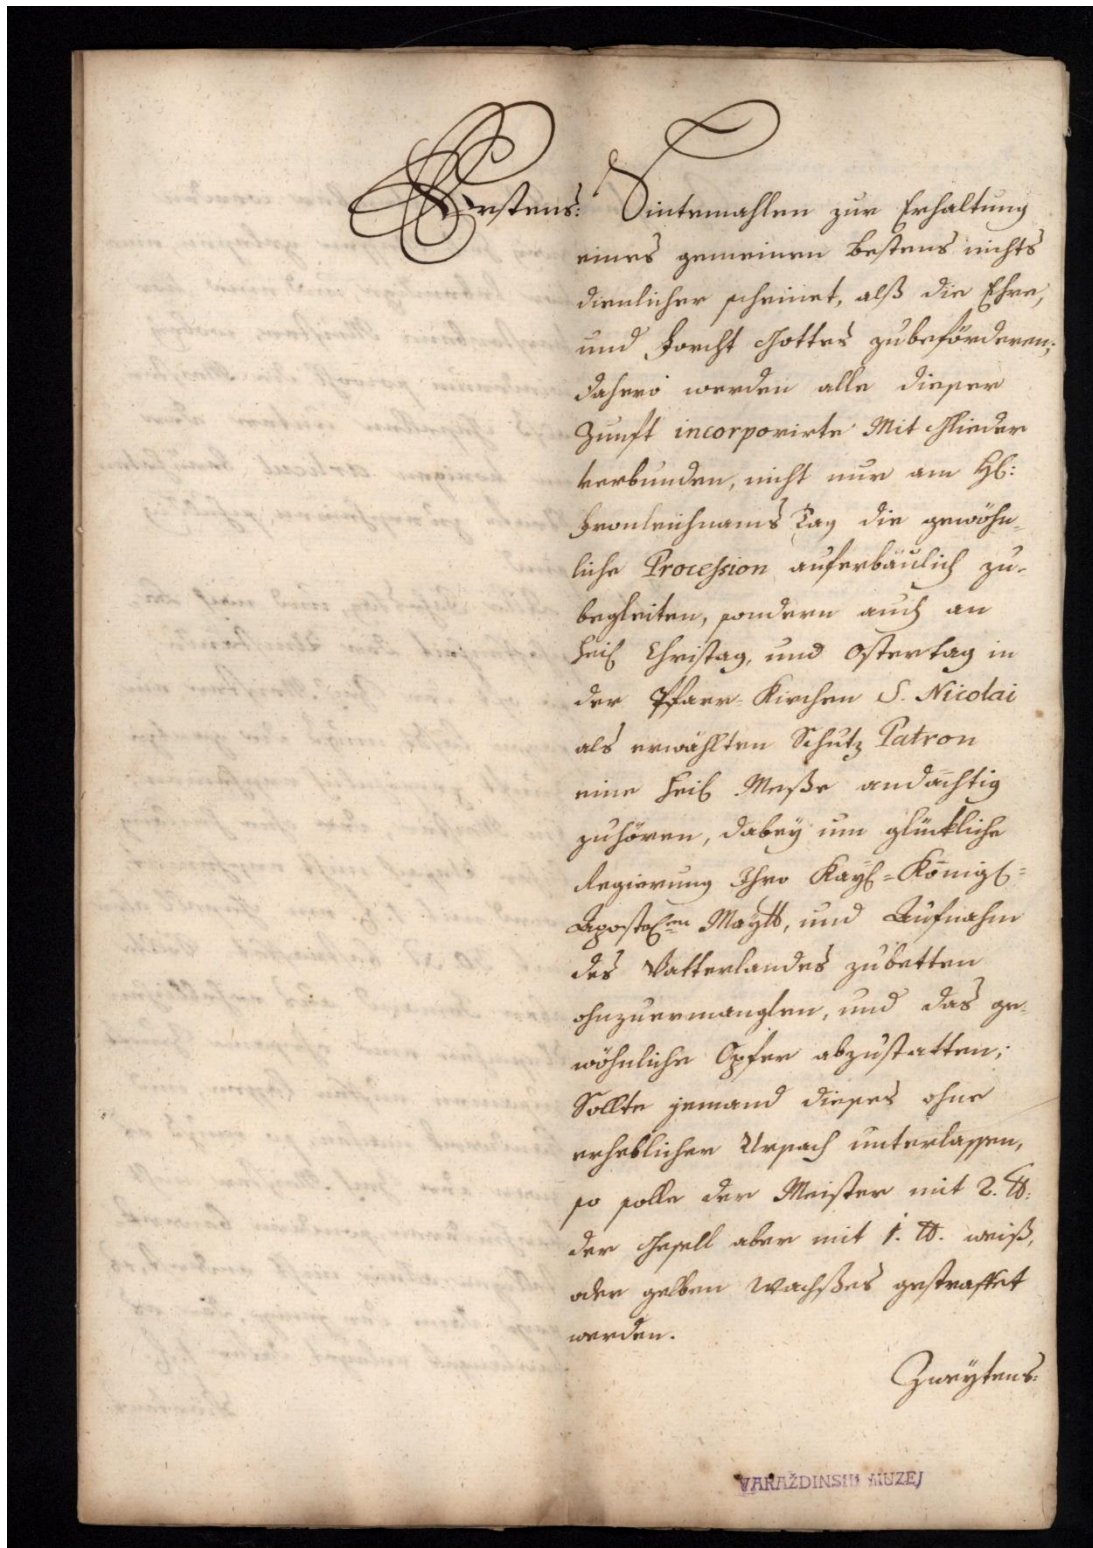 Erstens: Sintemahlen zur Erhaltung
eines gemeinen Bestens nichts
dienlicher scheinet, alß die Ehre,
und Forcht Gottes zubeförderen;
dahero werden alle dieser
Zunft incorporirte Mit Glieder
verbunden, nicht nur am Hl:
Fronleichnams Tag die gewöhn-
liche Procession auferbäulich zu-
begleiten, sondern auch an
Heil Christag, und Ostertag in
der Pfarr-Kirchen S. Nicolai
als erwählten Schutz Patron
eine Heil Meße andächtig
zuhören, dabey um glückliche
Regierung Ihro Kayl-Königl-
Apostolen Maytt, und Aufnahm
des Vatterlandes zubetten
ohnzuermanglen, und das ge-
wöhnliche Opfer abzustatten;
Sollte jemand dieses ohne
erheblicher Ursach unterlassen,
so solle der Meister mit 2. ℔:
der Gesell aber mit 1. ℔. weiß,
oder gelben Wachßes gestraffet
werden.
Zweytens:
VARAŽDINSKI MUZEJ